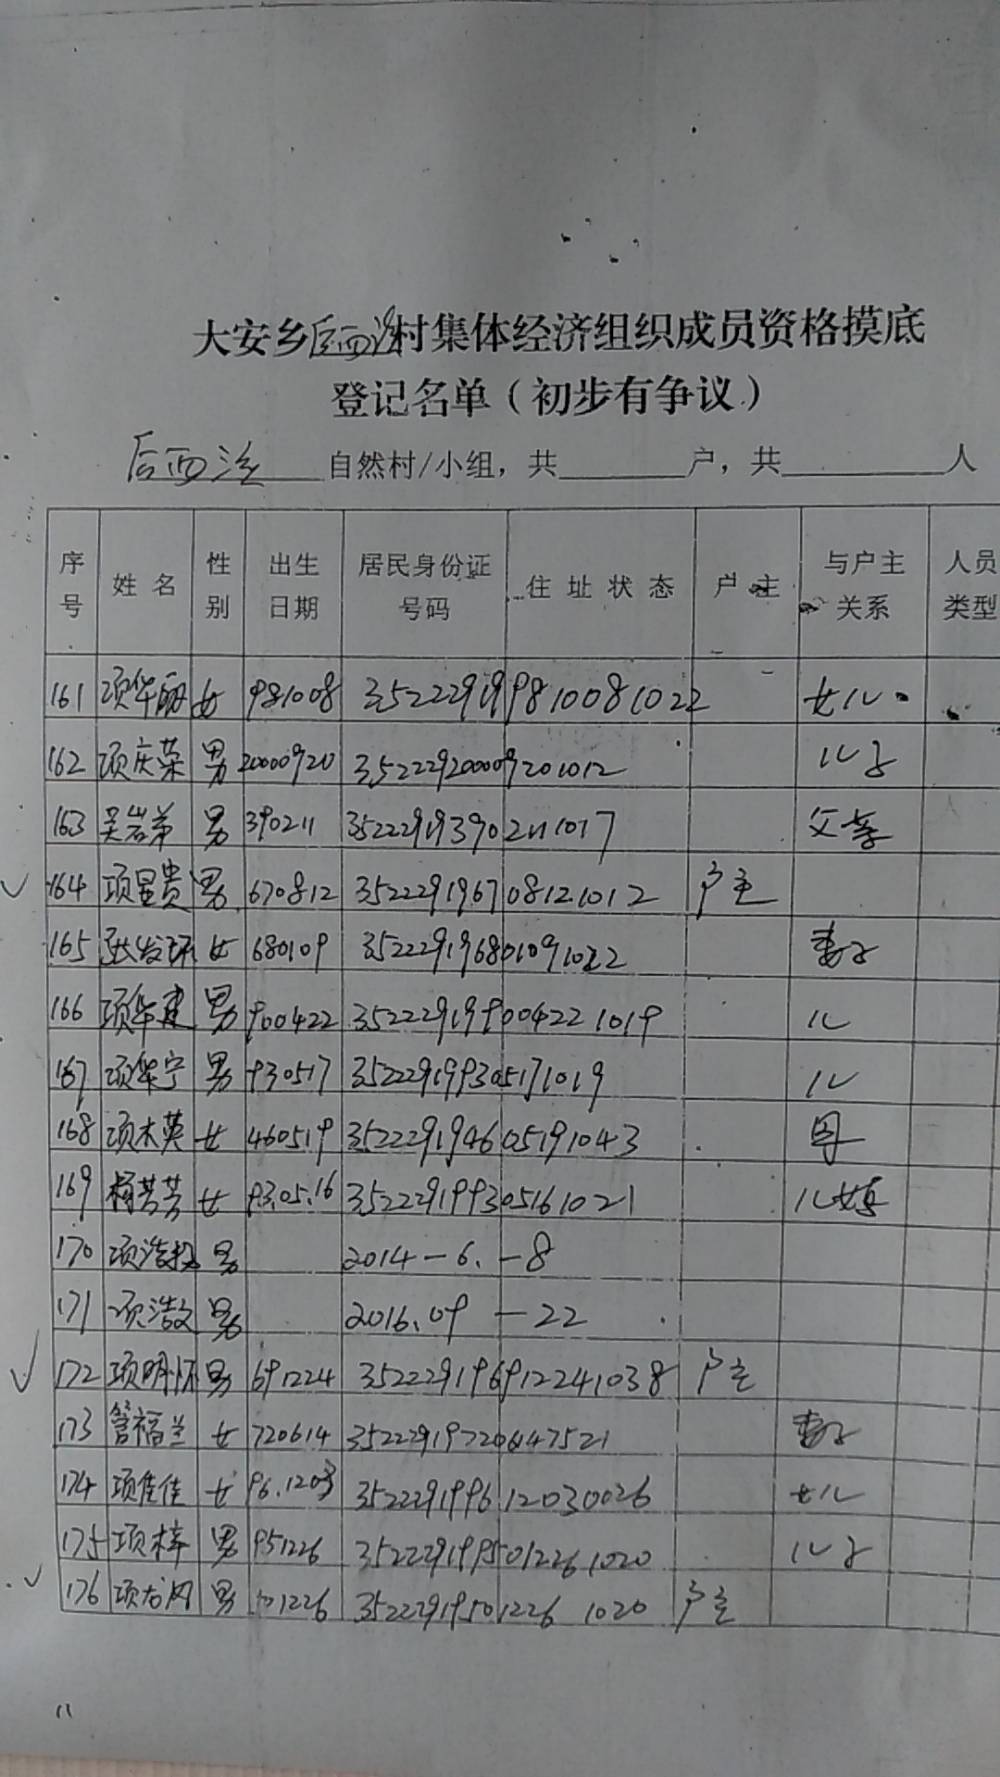 大安乡后西洋村集体经济组织成员资格摸底
登记名单（初步有争议）
后西洋 自然村/小组，共 户，共 人
序号 姓名 性别 出生日期 居民身份证号码 住址状态 户主 与户主关系 人员类型
161 项华丽 女 981008 352229199810081022 女儿
162 项庆荣 男 20000920 352229200009201012 儿子
163 吴岩弟 男 390211 352229193902111017 父亲
164 项显贵 男 670812 352229196708121012 户主
165 女 680109 352229196801091022 妻子
166 项华建 男 900422 352229199004221019 儿
167 项华宁 男 930517 352229199305171019 儿
168 项木英 女 460519 352229194605191043 母
169 杨芳芳 女 93.05.16 352229199305161021 儿媳
170 项浩 男 2014-6.-8
171 项浩文 男 2016.09-22
172 项明怀 男 691224 352229196912241038 户主
173 管福兰 女 720614 352229197206147521 妻子
174 项佳佳 女 96.1203 352229199612030026 女儿
175 项梓 男 951226 3522291995012261020 儿子
176 项龙 男 501226 35222919501226 1020 户主
11